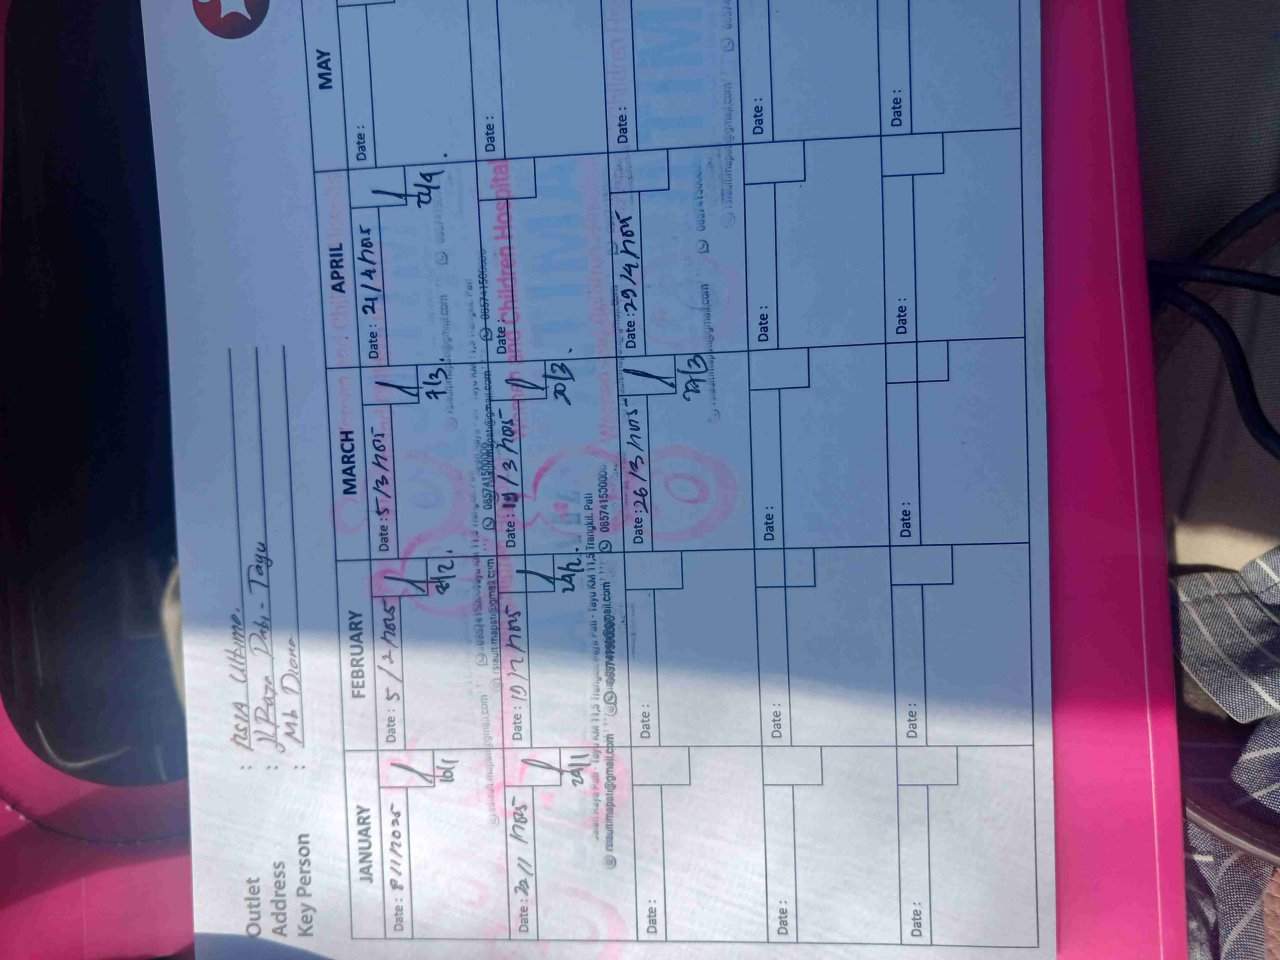 Outlet : RSIA Ultima.
Address : Jl Raya Pati - Tayu
Key Person : Mb Diana
JANUARY FEBRUARY MARCH APRIL MAY
Date : 8/1/2025 Date : 5/2/2025 Date : 5/3/2025 Date : 21/4/2025 Date :
10/1 7/2. 7/3. 22/4.
Date : 22/1/2025 Date : 19/2/2025 Date : 19/3/2025 Date : Date :
24/1 24/2. 20/3.
Date : Date : Date : 26/3/2025 Date : 29/4/2025 Date :
27/3
Date : Date : Date : Date : Date :
Date : Date : Date : Date : Date :
and Children Hospital
rsiaultimapati@gmail.com 085741500000
Jalan Raya Pati - Tayu KM 11,5 Trangkil, Pati